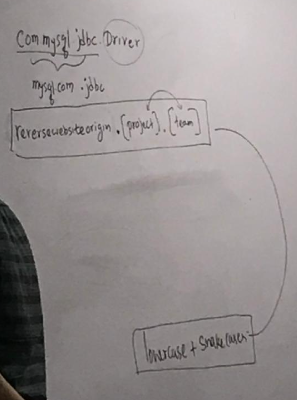 Com mysql jdbc. Driver
mysql.com .jdbc
reversewebsiteorigin . [project] . [team]
lowercase + snakecase